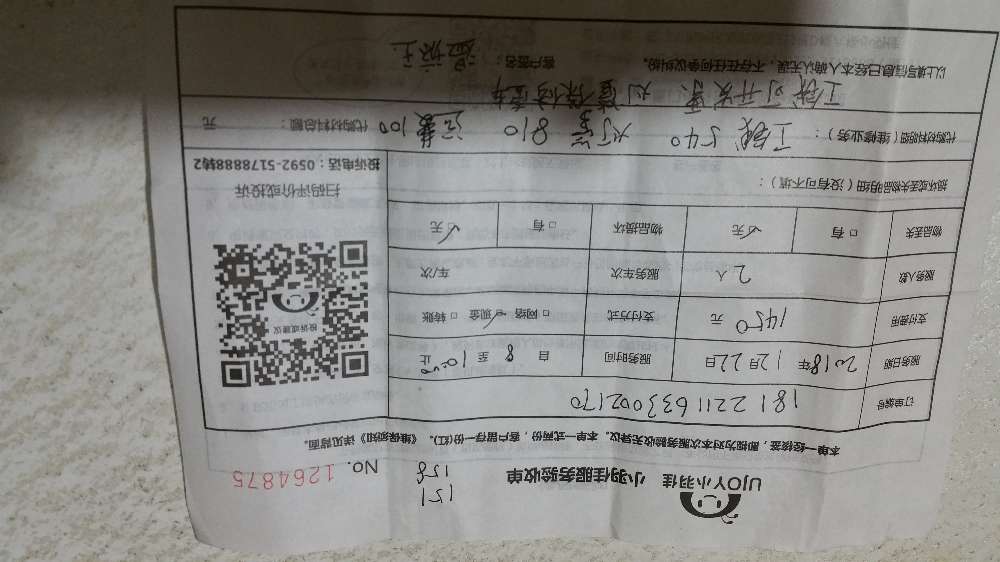 UJOY小羽佳 小羽佳服务验收单
151
158
No. 1264875
本单一经接签，即视为对本次服务验收无异议。本单一式两份，客户留存一份(红)。《维保须知》详见背面。
订单编号 1812211633002170
服务日期 2018年12月22日 服务时间 自 8 至 10:40 止
支付费用 1450 元 支付方式 □网络 ☑现金 □转账
服务人数 2人 服务车次 车/次
物品丢失 □有 ☑无 物品损坏 □有 ☑无
投诉或建议
扫码评价或投诉
投诉电话：0592-5178888转2
损坏或丢失物品明细（没有可不填）：
代购材料明细（维修业务）： 540 810 100 代购材料总额： 元
以上填写信息已经本人确认无误，不存在任何争议纠纷。 客户签名：